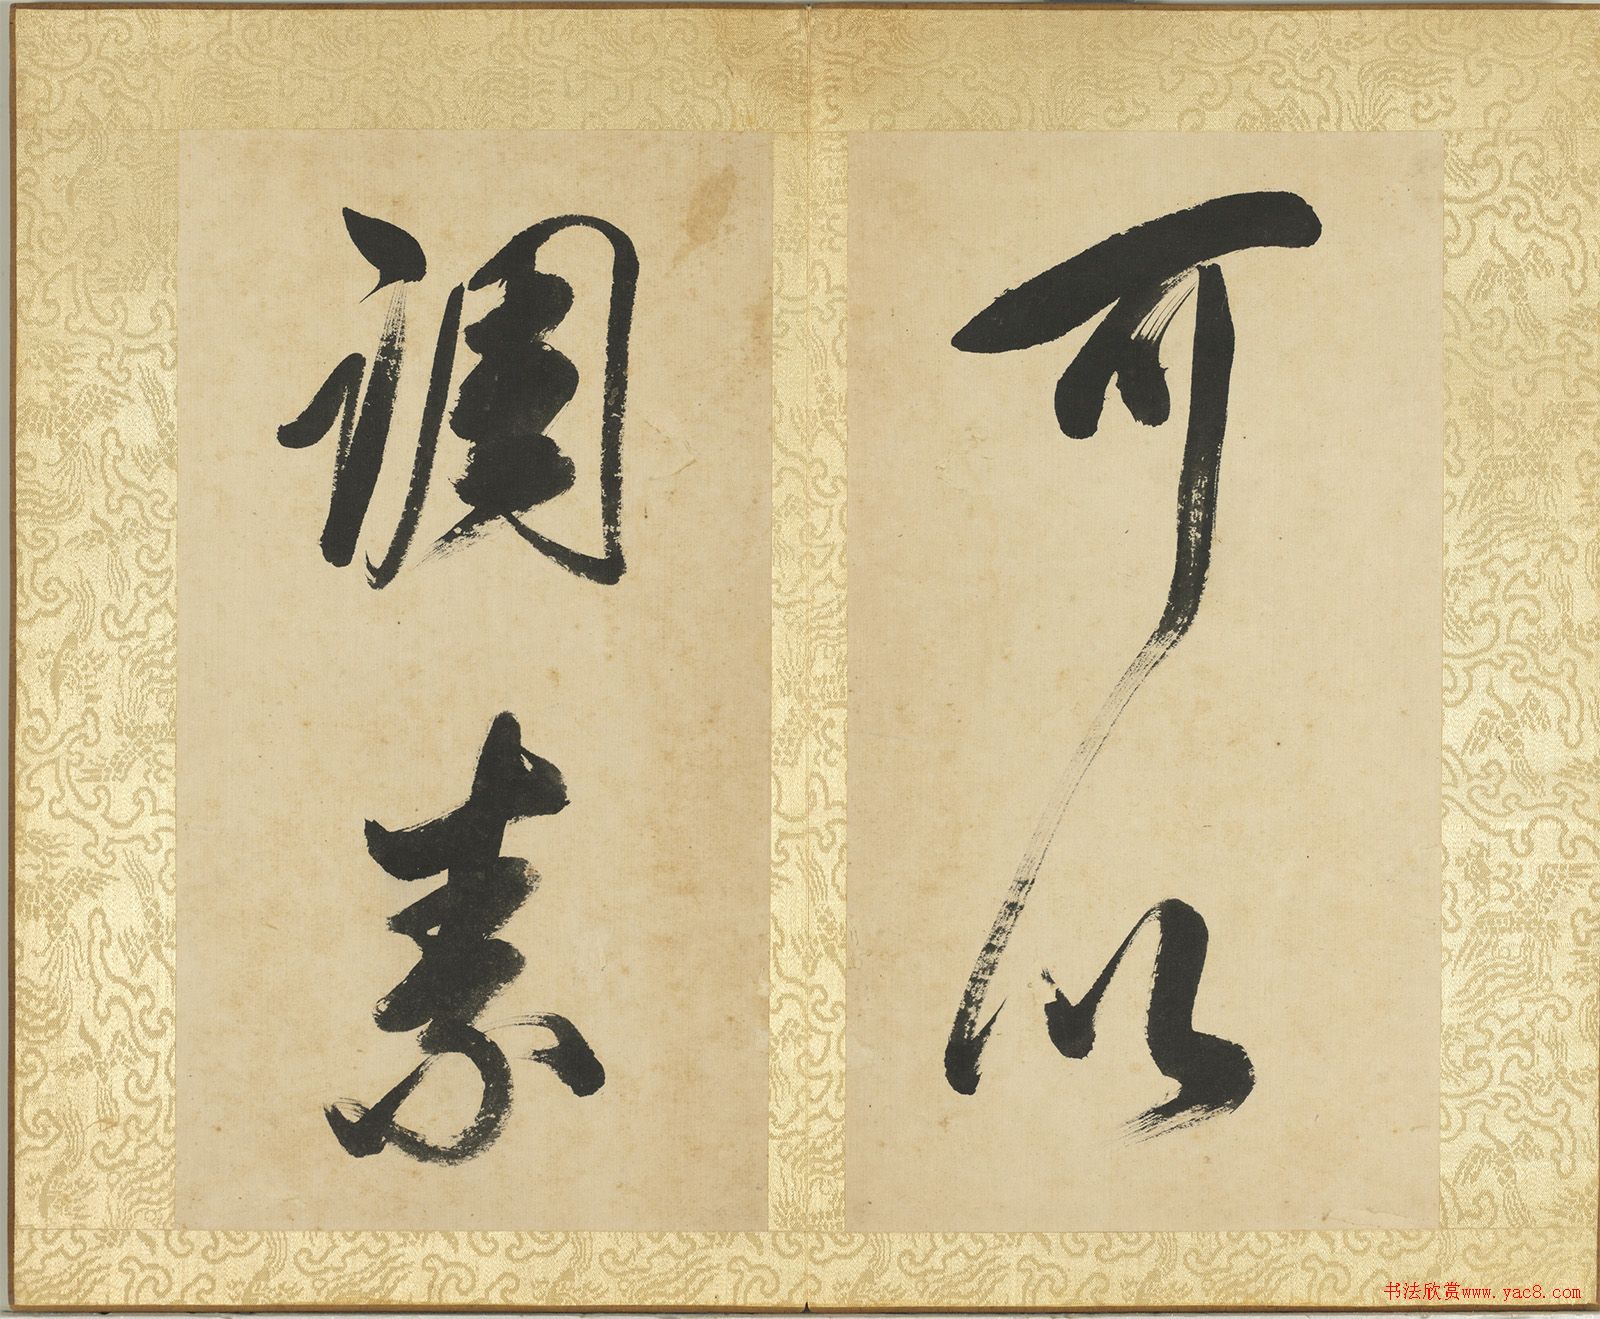 可以
调素
书法欣赏www.yac8.com